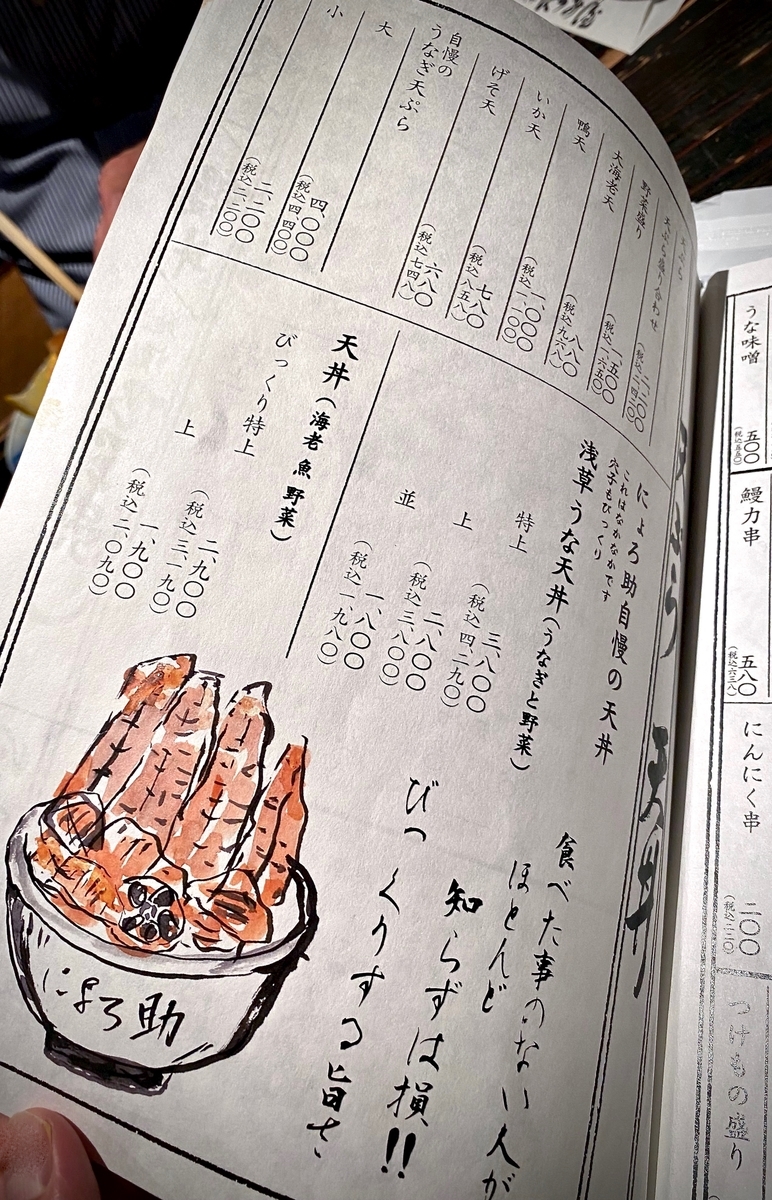 天ぷら 天丼
天ぷら
天ぷら盛り合わせ 二、二〇〇
(税込二、四二〇)
野菜盛り 一、五〇〇
(税込一、六五〇)
大海老天 八八〇
(税込九六八)
鴨天 一、〇〇〇
(税込一、一〇〇)
いか天 七八〇
(税込八五八)
げそ天 六八〇
(税込七四八)
自慢の
うなぎ天ぷら
大 四、〇〇〇
(税込四、四〇〇)
小 二、二〇〇
(税込二、二〇〇)
にょろ助自慢の天丼
これはなかなかです
穴子もびっくり
浅草うな天丼(うなぎと野菜)
特上 三、八〇〇
(税込四、二九〇)
上 二、八〇〇
(税込三、八〇〇)
並 一、八〇〇
(税込一、九八〇)
天丼(海老魚野菜)
びっくり特上 二、九〇〇
(税込三、一九〇)
上 一、九〇〇
(税込二、〇九〇)
食べた事のない人が
ほとんど
知らずは損!!
びっくりする旨さ
にょろ助
うな味噌 五〇〇
(税込五五〇)
鰻力串 五八〇
(税込六三八)
にんにく串 二〇〇
(税込二二〇)
つけもの盛り